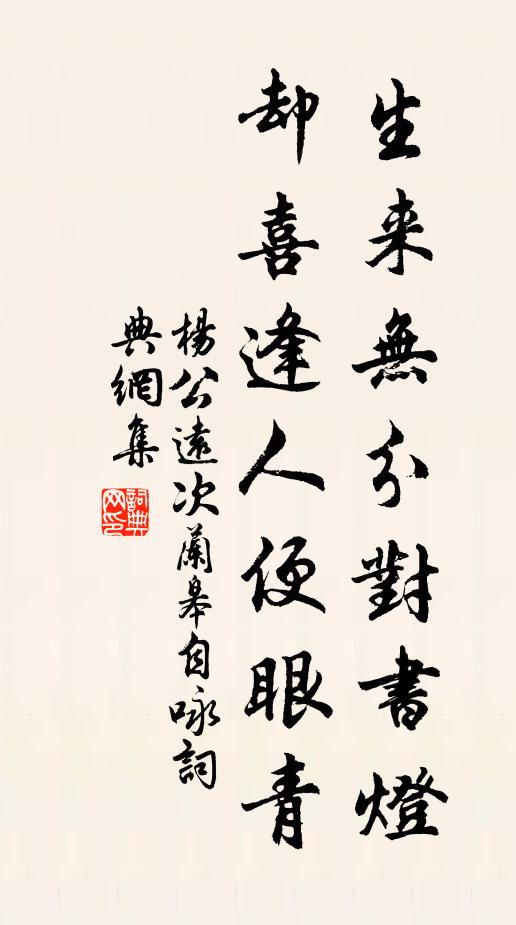 生来無分對書燈
却喜逢人便眼青
楊公遠次蘭皋自咏詞
典網集
詞典网印